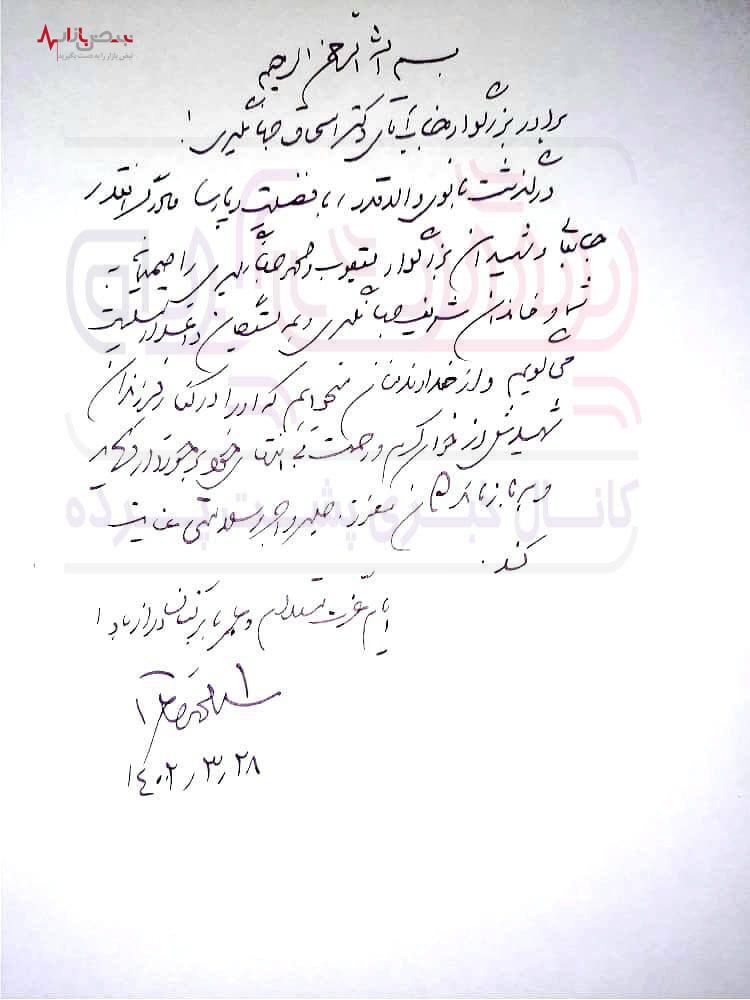 نبض بازار
نبض بازار را به دست بگیرید
بسم الله الرحمن الرحیم
برادر بزرگوار جناب آقای دکتر اسحاق جهانگیری!
درگذشت بانوی والاقدر، بافضیلت و پارسا مادر گرانقدر
جنابعالی و شهیدان بزرگوار یعقوب و محمد جهانگیری را صمیمانه به
شما و خاندان شریف جهانگیری و همه بستگان داغدار تسلیت
می‌گویم و از خداوند منان می‌خواهم که او را در کنار فرزندان
شهیدش از خوان کرم و رحمت بی‌انتهای خود برخوردار فرماید
و به بازماندگان معزز، صبر و اجر و سلامتی عنایت
کند.
ایام عزت مستدام و عمر با برکتتان دراز باد!
۱۴۰۲/۳/۲۸
کانال خبری پشت پرده